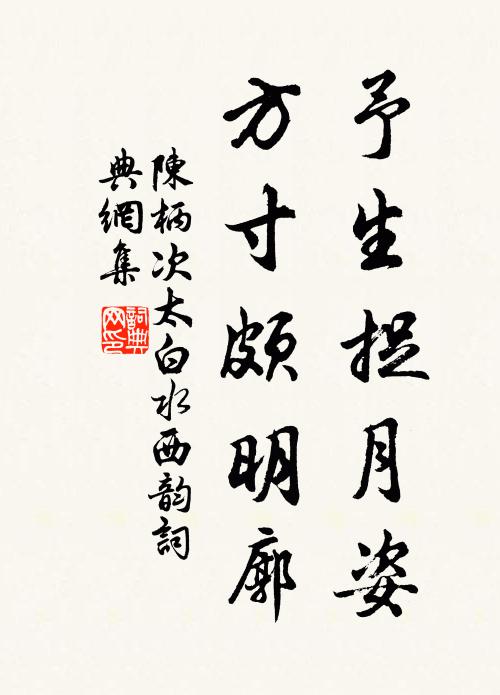 予生捉月姿
方寸颇明廓
陳柄次太白水西韵詞
典網集
詞典
网印